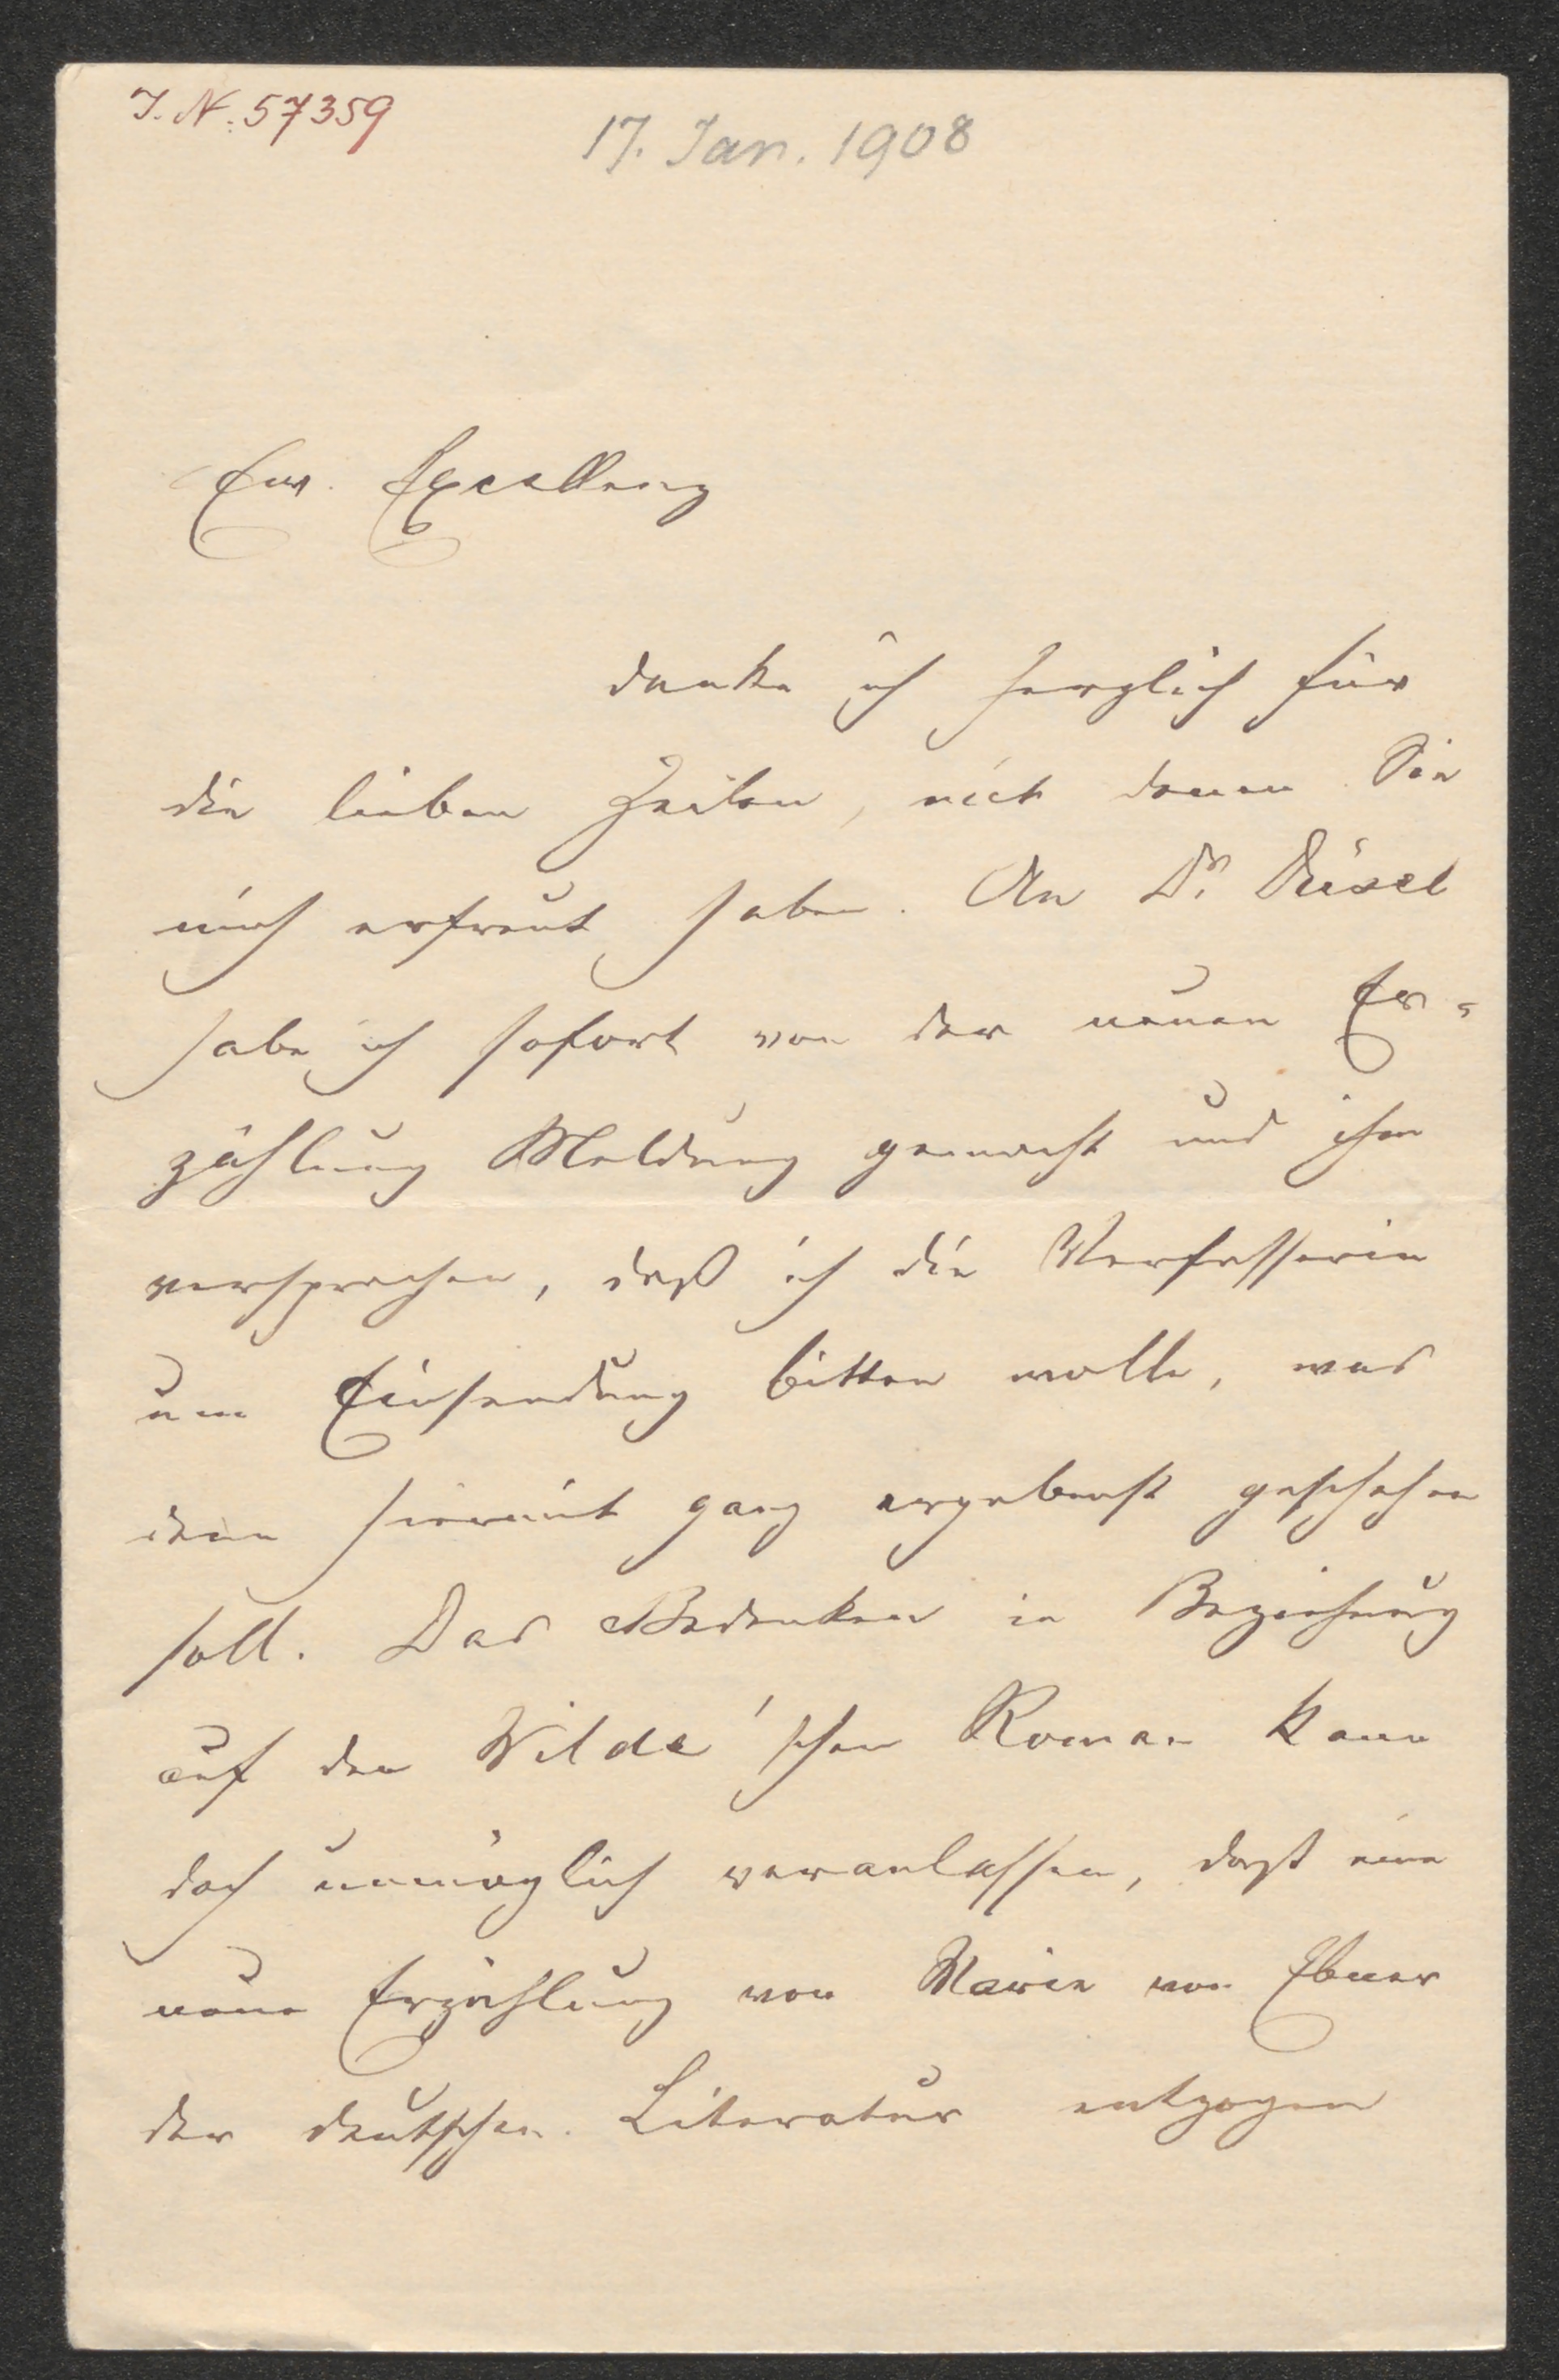 I. N. 57359
17. Jan. 1908
Euer Excellenz
danke ich herzlich für
die lieben Zeilen, mit denen Sie
mich erfreut haben. An Dr. Düsel
habe ich sofort von der neuen Er-
zählung Meldung gemacht und ihm
versprochen, daß ich die Verfasserin
um Einsendung bitten wolle, was
denn hiermit ganz ergebenst geschehen
soll. Das Bedenken in Beziehung
auf den Wilde'schen Roman kann
doch unmöglich veranlassen, daß eine
neue Erzählung von Marie von Ebner
der deutschen Literatur entzogen